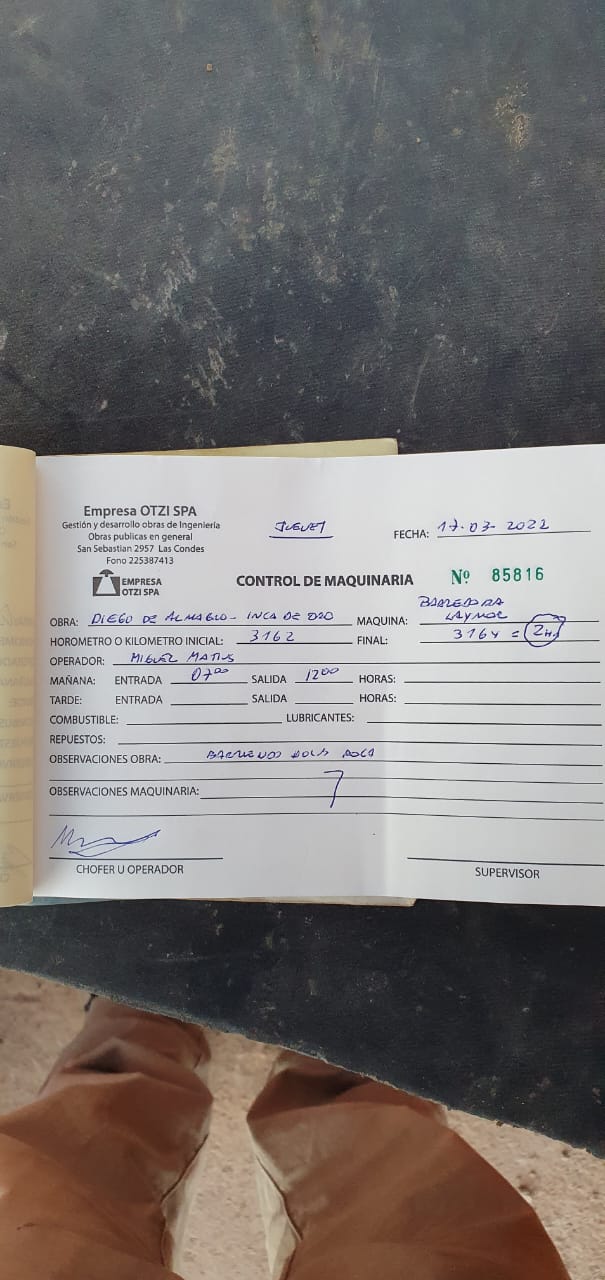 Empresa OTZI SPA
Gestión y desarrollo obras de Ingeniería
Obras publicas en general
San Sebastian 2957 Las Condes
Fono 225387413
EMPRESA
OTZI SPA
JUEVES
FECHA: 17-03-2022
CONTROL DE MAQUINARIA
Nº 85816
OBRA: DIEGO DE ALMAGRO - INCA DE ORO MAQUINA: BARREDORA LAYMOR
HOROMETRO O KILOMETRO INICIAL: 3162 FINAL: 3164 = 2H
OPERADOR: MIGUEL MATUS
MAÑANA: ENTRADA 07⁰⁰ SALIDA 12⁰⁰ HORAS:
TARDE: ENTRADA SALIDA HORAS:
COMBUSTIBLE: LUBRICANTES:
REPUESTOS:
OBSERVACIONES OBRA: BARRIENDO
OBSERVACIONES MAQUINARIA:
CHOFER U OPERADOR
SUPERVISOR